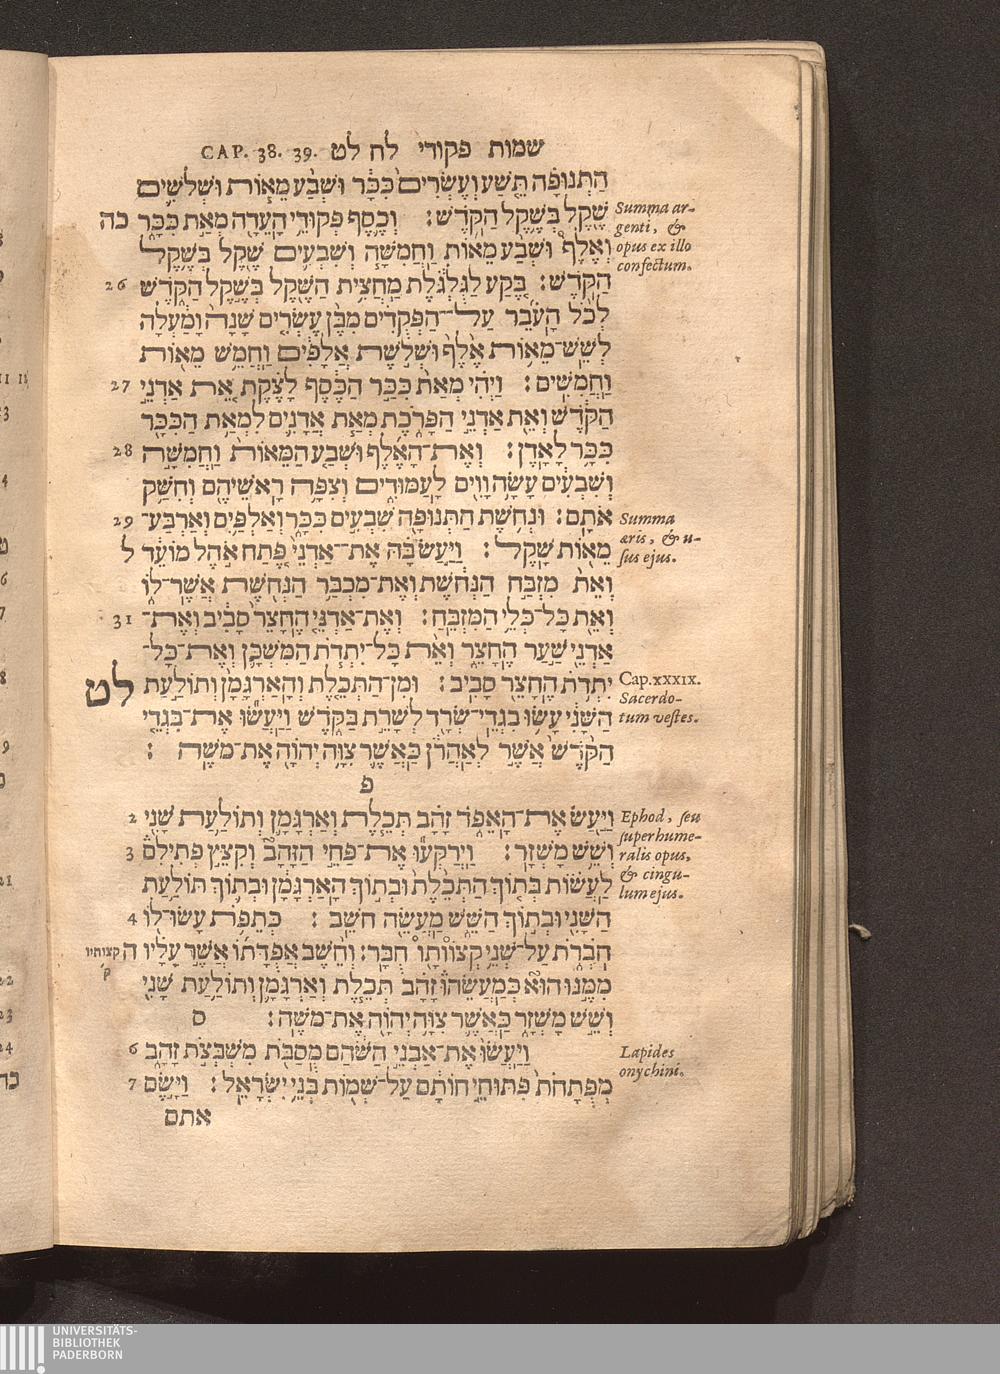 CAP. 38. 39. שמות פקודי לח לט
הַתְּנוּפָה תֵּשַׁע וְעֶשְׂרִים כִּכָּר וּשְׁבַע מֵאוֹת וּשְׁלֹשִׁים
שֶׁקֶל בְּשֶׁקֶל הַקֹּדֶשׁ׃ וְכֶסֶף פְּקוּדֵי הָעֵדָה מְאַת כִּכָּר כה
Summa ar-
genti, &
opus ex illo
confectum.
וְאֶלֶף וּשְׁבַע מֵאוֹת וַחֲמִשָּׁה וְשִׁבְעִים שֶׁקֶל בְּשֶׁקֶל
הַקֹּדֶשׁ׃ בֶּקַע לַגֻּלְגֹּלֶת מַחֲצִית הַשֶּׁקֶל בְּשֶׁקֶל הַקֹּדֶשׁ 26
לְכֹל הָעֹבֵר עַל־הַפְּקֻדִים מִבֶּן עֶשְׂרִים שָׁנָה וָמַעְלָה
לְשֵׁשׁ־מֵאוֹת אֶלֶף וּשְׁלֹשֶׁת אֲלָפִים וַחֲמֵשׁ מֵאוֹת
וַחֲמִשִּׁים׃ וַיְהִי מְאַת כִּכַּר הַכֶּסֶף לָצֶקֶת אֵת אַדְנֵי 27
הַקֹּדֶשׁ וְאֵת אַדְנֵי הַפָּרֹכֶת מְאַת אֲדָנִים לִמְאַת הַכִּכָּר
כִּכָּר לָאָדֶן׃ וְאֶת־הָאֶלֶף וּשְׁבַע הַמֵּאוֹת וַחֲמִשָּׁה 28
וְשִׁבְעִים עָשָׂה וָוִים לָעַמּוּדִים וְצִפָּה רָאשֵׁיהֶם וְחִשַּׁק
אֹתָם׃ וּנְחֹשֶׁת הַתְּנוּפָה שִׁבְעִים כִּכָּר וְאַלְפַּיִם וְאַרְבַּע־ 29
Summa
æris, & u-
sus ejus.
מֵאוֹת שָׁקֶל׃ וַיַּעַשׂ בָּהּ אֶת־אַדְנֵי פֶּתַח אֹהֶל מוֹעֵד ל
וְאֵת מִזְבַּח הַנְּחֹשֶׁת וְאֶת־מִכְבַּר הַנְּחֹשֶׁת אֲשֶׁר־לוֹ
וְאֵת כָּל־כְּלֵי הַמִּזְבֵּחַ׃ וְאֶת־אַדְנֵי הֶחָצֵר סָבִיב וְאֶת־ 31
אַדְנֵי שַׁעַר הֶחָצֵר וְאֵת כָּל־יִתְדֹת הַמִּשְׁכָּן וְאֶת־כָּל־
יִתְדֹת הֶחָצֵר סָבִיב׃ וּמִן־הַתְּכֵלֶת וְהָאַרְגָּמָן וְתוֹלַעַת לט
Cap.xxxix.
Sacerdo-
tum vestes.
הַשָּׁנִי עָשׂוּ בִגְדֵי־שְׂרָד לְשָׁרֵת בַּקֹּדֶשׁ וַיַּעֲשׂוּ אֶת־בִּגְדֵי
הַקֹּדֶשׁ אֲשֶׁר לְאַהֲרֹן כַּאֲשֶׁר צִוָּה יְהוָֹה אֶת־מֹשֶׁה׃
פ
וַיַּעַשׂ אֶת־הָאֵפֹד זָהָב תְּכֵלֶת וְאַרְגָּמָן וְתוֹלַעַת שָׁנִי 2
Ephod, seu
superhume-
ralis opus,
& cingu-
lum ejus.
וְשֵׁשׁ מָשְׁזָר׃ וַיְרַקְּעוּ אֶת־פַּחֵי הַזָּהָב וְקִצֵּץ פְּתִילִם 3
לַעֲשׂוֹת בְּתוֹךְ הַתְּכֵלֶת וּבְתוֹךְ הָאַרְגָּמָן וּבְתוֹךְ תּוֹלַעַת
הַשָּׁנִי וּבְתוֹךְ הַשֵּׁשׁ מַעֲשֵׂה חֹשֵׁב׃ כְּתֵפֹת עָשׂוּ־לוֹ 4
חֹבְרֹת עַל־שְׁנֵי קְצוֹותָו חֻבָּר׃ וְחֵשֶׁב אֲפֻדָּתוֹ אֲשֶׁר עָלָיו ה
קצותיו
ק׳
מִמֶּנּוּ הוּא כְּמַעֲשֵׂהוּ זָהָב תְּכֵלֶת וְאַרְגָּמָן וְתוֹלַעַת שָׁנִי
וְשֵׁשׁ מָשְׁזָר כַּאֲשֶׁר צִוָּה יְהוָֹה אֶת־מֹשֶׁה׃ ס
וַיַּעֲשׂוּ אֶת־אַבְנֵי הַשֹּׁהַם מֻסַבֹּת מִשְׁבְּצֹת זָהָב 6
Lapides
onychini.
מְפֻתָּחֹת פִּתּוּחֵי חוֹתָם עַל־שְׁמוֹת בְּנֵי יִשְׂרָאֵל׃ וַיָּשֶׂם 7
אתם
UNIVERSITÄTS-
BIBLIOTHEK
PADERBORN